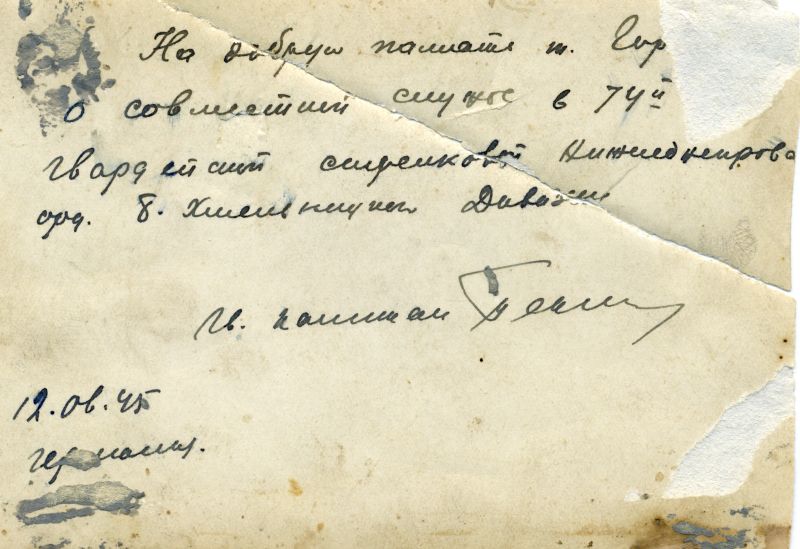 На добрую память т. Гор
о совместной службе в 74й
гвардейской стрелковой Нижнеднепровс
орд. Б. Хмельницкого Дивизии
гв. капитан
12.08.45
Германия.